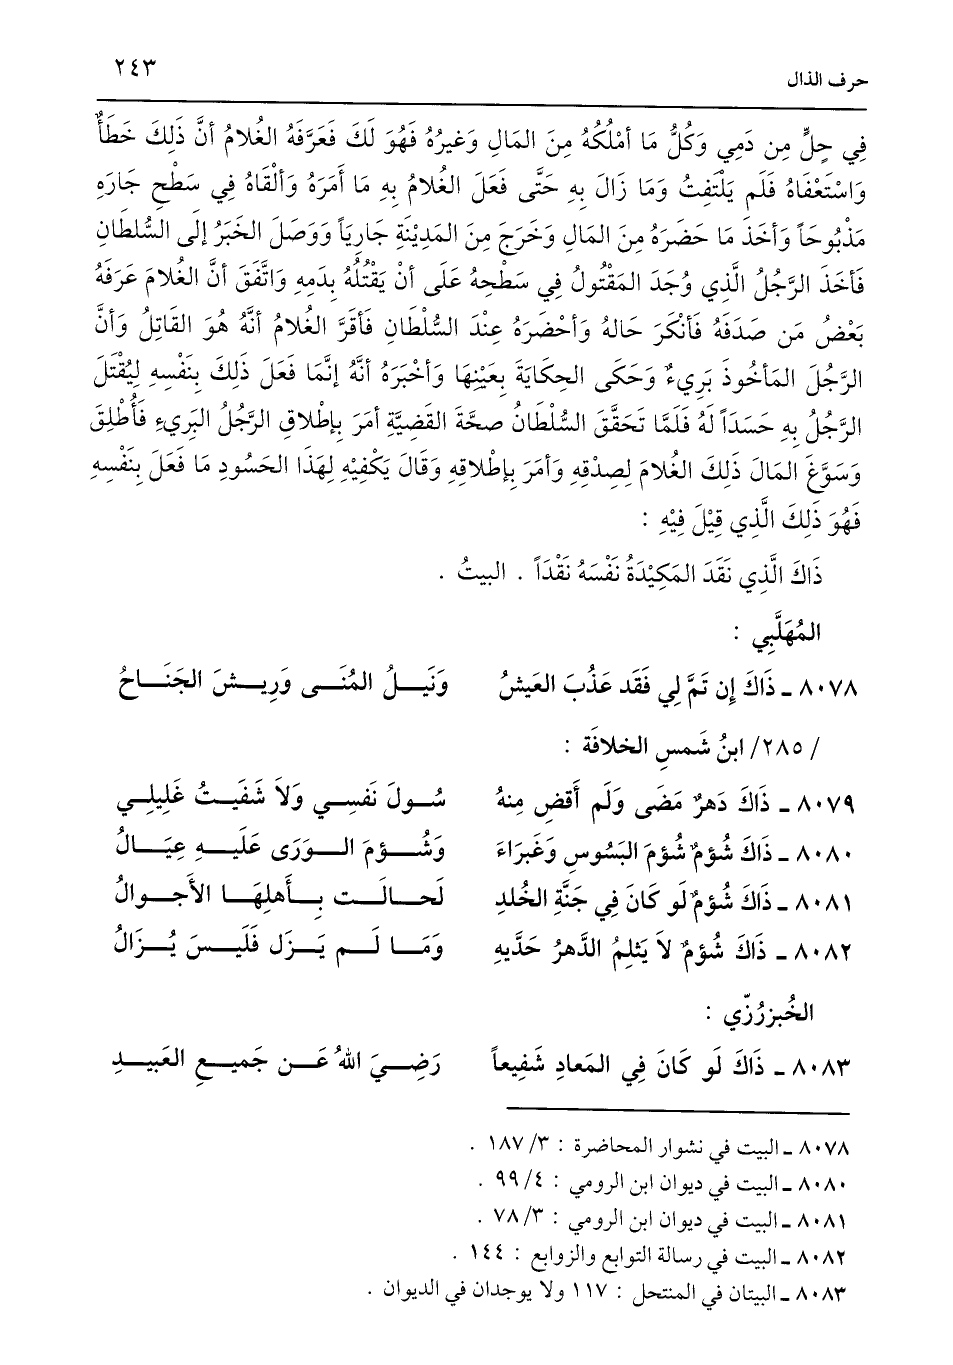 حرف الذال ٢٤٣
فِي حِلٍّ مِن دَمِي وَكُلُّ مَا أمْلُكُهُ مِنَ المَالِ وَغيرُهُ فَهُوَ لَكَ فَعَرَّفَهُ الغُلَامُ أنَّ ذَلِكَ خَطَأٌ
وَاسْتَعْفَاهُ فَلَم يَلْتَفِتُ وَمَا زَالَ بِهِ حَتَّى فَعَلَ الغُلَامُ بِهِ مَا أَمَرَهُ وَألْقَاهُ فِي سَطْحِ جَارَهِ
مَذْبُوحَاً وَأخَذَ مَا حَضَرَهُ مِنَ المَالِ وَخَرَجَ مِنَ المَدِيْنَةِ جَارِيَاً وَوَصَلَ الخَبَرُ إلَى السُّلطَانِ
فَأخَذَ الرَّجُلُ الَّذِي وُجَدَ المَقْتُولُ فِي سَطْحِهُ عَلَى أنْ يَقْتُلُهُ بِدَمِهِ وَاتَّفَقَ أنَّ الغُلَامَ عَرَفَهُ
بَعْضُ مَن صَدَفَهُ فَأنْكَرَ حَالهُ وَأحْضَرَهُ عِنْدَ السُّلْطَانِ فَأقَرَّ الغُلَامُ أنَّهُ هُوَ القَاتِلُ وَأنَّ
الرَّجُلَ المَأخُوذَ بَرِيءٌ وَحَكَى الحِكَايَةَ بِعَيْنِهَا وَأخْبَرَهُ أنَّهُ إنَّمَا فَعَلَ ذَلِكَ بِنَفْسِهِ لِيُقْتَلَ
الرَّجُلُ بِهِ حَسَدَاً لَهُ فَلَمَّا تَحَقَّقَ السُّلْطَانُ صحَّةَ القَضِيَّةِ أمَرَ بِإطْلَاقِ الرَّجُلُ البَرِيءِ فَأُطْلِقَ
وَسَوَّغَ المَالَ ذَلِكَ الغُلَامَ لِصِدْقِهِ وَأمَرَ بِإطْلَاقِهِ وَقَالَ يَكْفِيْهِ لِهَذَا الحَسُودِ مَا فَعَلَ بِنَفْسِهِ
فَهُوَ ذَلِكَ الَّذِي قِيْلَ فِيْهِ :
ذَاكَ الَّذِي نَقَدَ المَكِيْدَةُ نَفْسَهُ نَقْدَاً . البيتُ .
المُهَلَّبِي :
٨٠٧٨ ـ ذَاكَ إِن تَمَّ لِي فَقَد عَذُبَ العَيشُ وَنَيلُ المُنَى وَرِيشَ الجَنَاحُ
/ ٢٨٥/ ابنُ شَمسِ الخلافَة :
٨٠٧٩ ـ ذَاكَ دَهرٌ مَضَى وَلَم أَقضِ مِنهُ سُولَ نَفسِي وَلاَ شَفَيتُ غَلِيلِي
٨٠٨٠ ـ ذَاكَ شُؤمٌ شُؤمَ البَسُوسِ وَغَبرَاءَ وَشُؤمَ الوَرَى عَلَيهِ عِيَالُ
٨٠٨١ ـ ذَاكَ شُؤمٌ لَو كَانَ فِي جَنَّةِ الخُلدِ لَحالَت بِأَهلِهَا الأَحوالُ
٨٠٨٢ ـ ذَاكَ شُؤمٌ لاَ يَثلِمُ الدَّهرُ حَدَّيهِ وَمَا لَم يَزَل فَلَيسَ يُزَالُ
الخُبزرُزّي :
٨٠٨٣ ـ ذَاكَ لَو كَانَ فِي المَعادِ شَفِيعاً رَضِيَ اللهُ عَن جَمِيعِ العَبِيدِ
٨٠٧٨ ـ البيت في نشوار المحاضرة : ٣/ ١٨٧ .
٨٠٨٠ ـ البيت في ديوان ابن الرومي : ٤/ ٩٩ .
٨٠٨١ ـ البيت في ديوان ابن الرومي : ٣/ ٧٨ .
٨٠٨٢ ـ البيت في رسالة التوابع والزوابع : ١٤٤ .
٨٠٨٣ ـ البيتان في المنتحل : ١١٧ ولا يوجدان في الديوان .